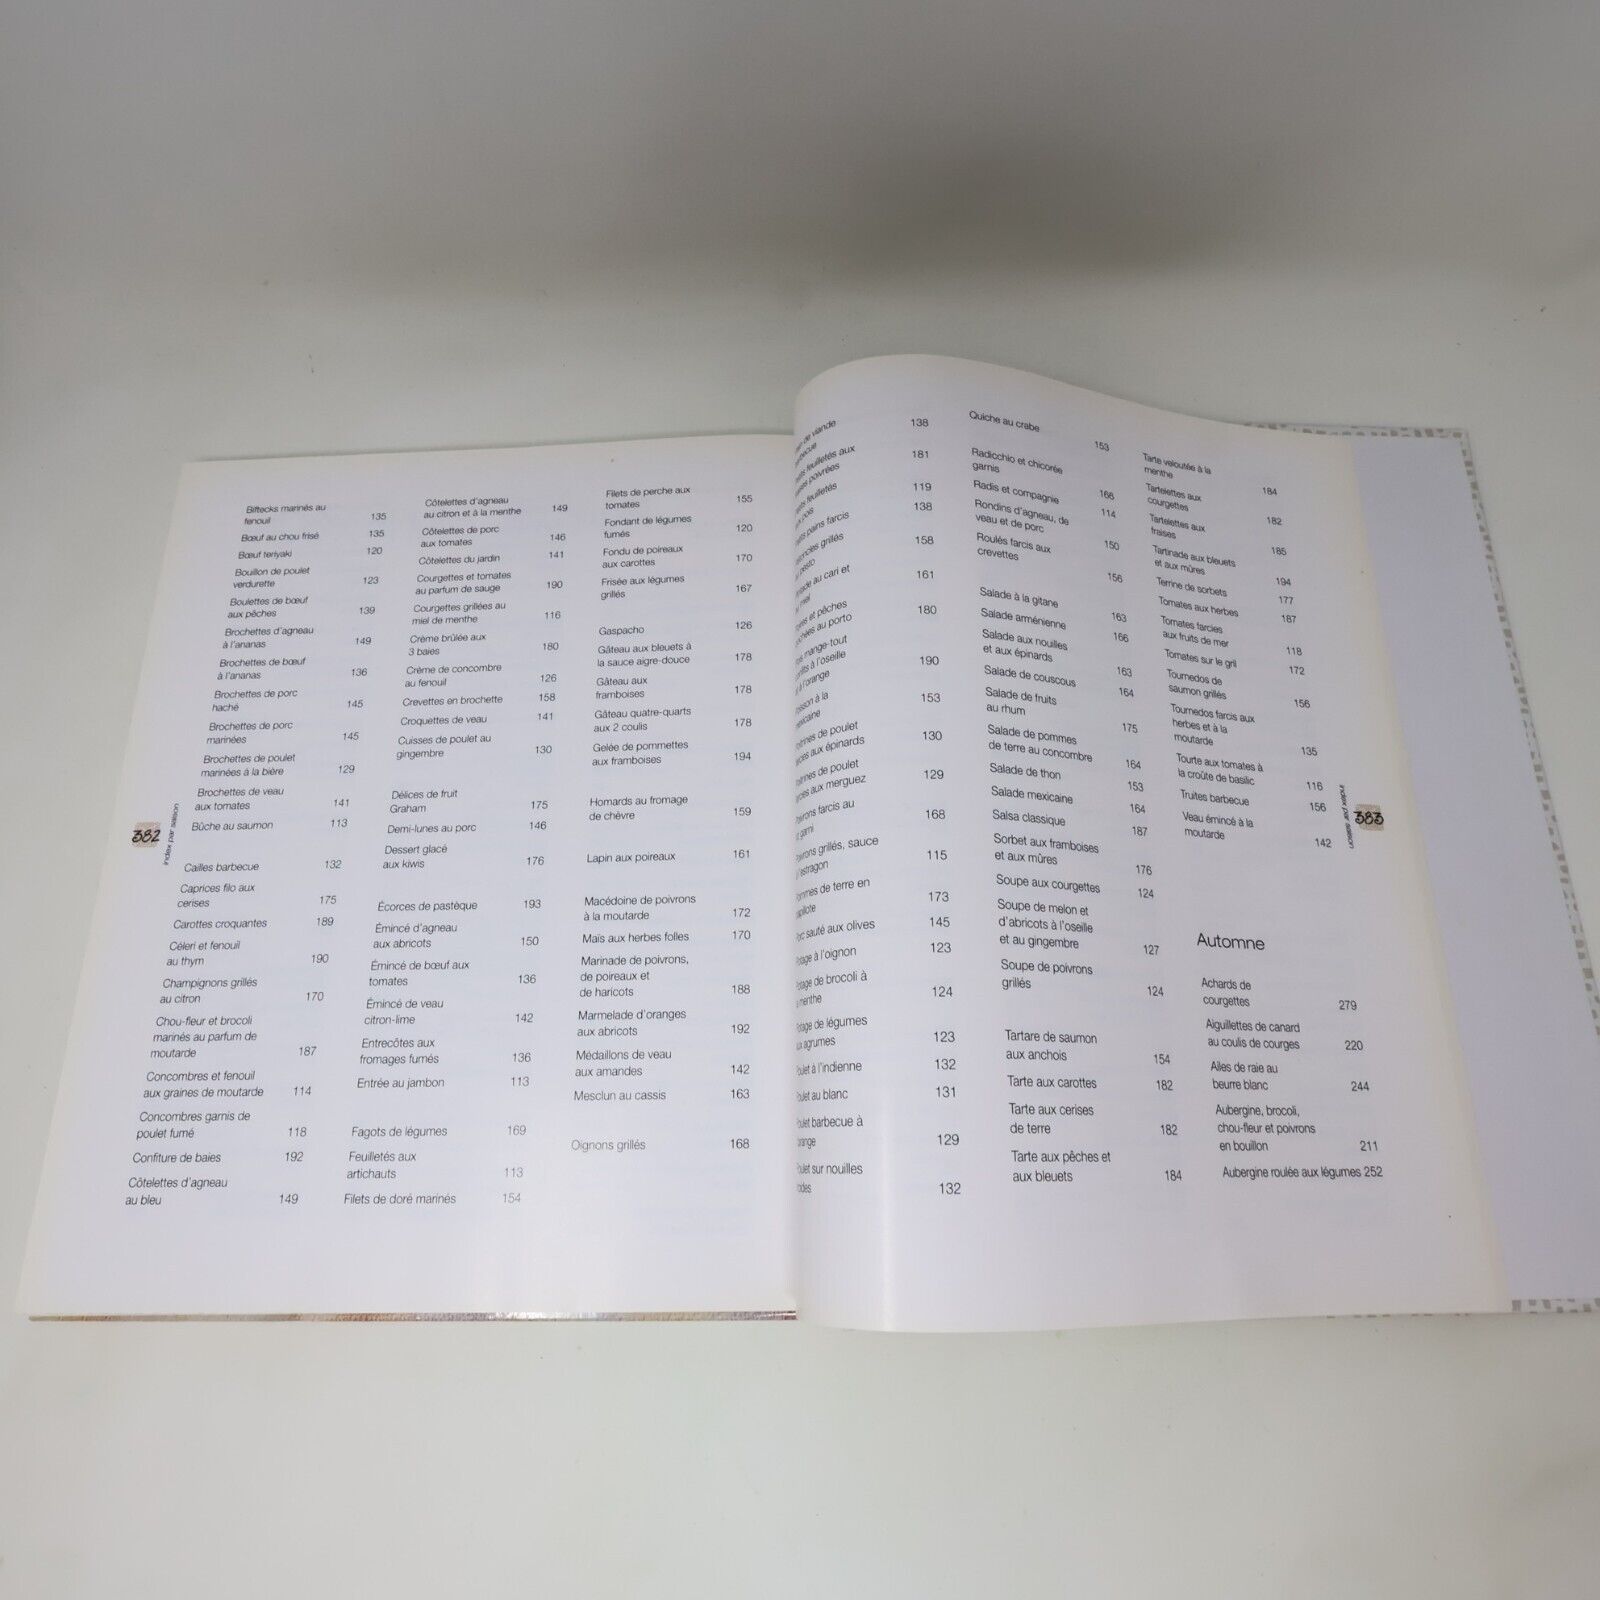 Biftecks marinés au
fenouil 135
Bœuf au chou frisé 135
Bœuf teriyaki 120
Bouillon de poulet
verdurette 123
Boulettes de bœuf
aux pêches 139
Brochettes d'agneau
à l'ananas 149
Brochettes de bœuf
à l'ananas 136
Brochettes de porc
haché 145
Brochettes de porc
marinées 145
Brochettes de poulet
marinées à la bière 129
Brochettes de veau
aux tomates 141
Bûche au saumon 113
Cailles barbecue 132
Caprices filo aux
cerises 175
Carottes croquantes 189
Céleri et fenouil
au thym 190
Champignons grillés
au citron 170
Chou-fleur et brocoli
marinés au parfum de
moutarde 187
Concombres et fenouil
aux graines de moutarde 114
Concombres garnis de
poulet fumé 118
Confiture de baies 192
Côtelettes d'agneau
au bleu 149
382
index par saison
Côtelettes d'agneau
au citron et à la menthe 149
Côtelettes de porc
aux tomates 146
Côtelettes du jardin 141
Courgettes et tomates
au parfum de sauge 190
Courgettes grillées au
miel de menthe 116
Crème brûlée aux
3 baies 180
Crème de concombre
au fenouil 126
Crevettes en brochette 158
Croquettes de veau 141
Cuisses de poulet au
gingembre 130
Délices de fruit
Graham 175
Demi-lunes au porc 146
Dessert glacé
aux kiwis 176
Écorces de pastèque 193
Émincé d'agneau
aux abricots 150
Émincé de bœuf aux
tomates 136
Émincé de veau
citron-lime 142
Entrecôtes aux
fromages fumés 136
Entrée au jambon 113
Fagots de légumes 169
Feuilletés aux
artichauts 113
Filets de doré marinés 154
Filets de perche aux
tomates 155
Fondant de légumes
fumés 120
Fondu de poireaux
aux carottes 170
Frisée aux légumes
grillés 167
Gaspacho 126
Gâteau aux bleuets à
la sauce aigre-douce 178
Gâteau aux
framboises 178
Gâteau quatre-quarts
aux 2 coulis 178
Gelée de pommettes
aux framboises 194
Homards au fromage
de chèvre 159
Lapin aux poireaux 161
Macédoine de poivrons
à la moutarde 172
Maïs aux herbes folles 170
Marinade de poivrons,
de poireaux et
de haricots 188
Marmelade d'oranges
aux abricots 192
Médaillons de veau
aux amandes 142
Mesclun au cassis 163
Oignons grillés 168
de viande 138
feuilletés aux
poivrées 181
feuilletés
pois 119
pains farcis 138
grillés
pesto 158
au cari et
miel 161
et pêches
au porto 180
mange-tout
à l'oseille
à l'orange 190
à la
153
de poulet
aux épinards 130
de poulet
aux merguez 129
farcis au
168
grillés, sauce
115
de terre en
173
sauté aux olives 145
à l'oignon 123
de brocoli à
menthe 124
de légumes
agrumes 123
à l'indienne 132
au blanc 131
barbecue à
129
sur nouilles
132
Quiche au crabe 153
Radicchio et chicorée
garnis 166
Radis et compagnie 114
Rondins d'agneau, de
veau et de porc 150
Roulés farcis aux
crevettes 156
Salade à la gitane 163
Salade arménienne 166
Salade aux nouilles
et aux épinards 163
Salade de couscous 164
Salade de fruits
au rhum 175
Salade de pommes
de terre au concombre 164
Salade de thon 153
Salade mexicaine 164
Salsa classique 187
Sorbet aux framboises
et aux mûres 176
Soupe aux courgettes 124
Soupe de melon et
d'abricots à l'oseille
et au gingembre 127
Soupe de poivrons
grillés 124
Tartare de saumon
aux anchois 154
Tarte aux carottes 182
Tarte aux cerises
de terre 182
Tarte aux pêches et
aux bleuets 184
Tarte veloutée à la
menthe 184
Tartelettes aux
courgettes 182
Tartelettes aux
fraises 185
Tartinade aux bleuets
et aux mûres 194
Terrine de sorbets 177
Tomates aux herbes 187
Tomates farcies
aux fruits de mer 118
Tomates sur le gril 172
Tournedos de
saumon grillés 156
Tournedos farcis aux
herbes et à la
moutarde 135
Tourte aux tomates à
la croûte de basilic 116
Truites barbecue 156
Veau émincé à la
moutarde 142
Automne
Achards de
courgettes 279
Aiguillettes de canard
au coulis de courges 220
Ailes de raie au
beurre blanc 244
Aubergine, brocoli,
chou-fleur et poivrons
en bouillon 211
Aubergine roulée aux légumes 252
index par saison
383